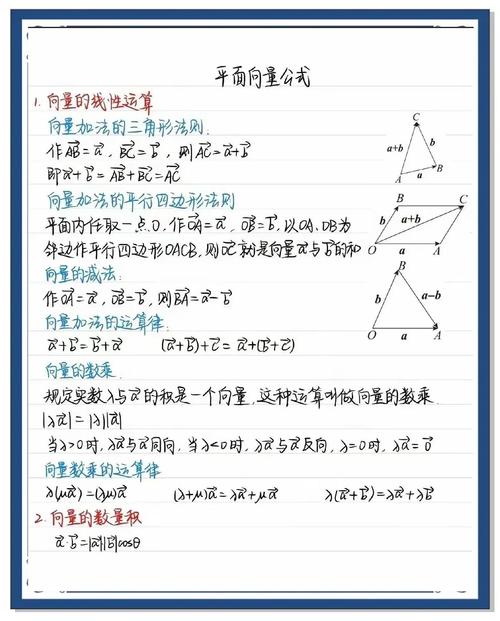 平面向量公式
1.向量的线性运算
向量加法的三角形法则.
作AB⃗=a⃗，BC⃗=b⃗，则AC⃗=a⃗+b⃗
即a⃗+b⃗=AB⃗+BC⃗=AC⃗
C
a+b
b
A
a
B
向量加法的平行四边形法则
平面内任取一点O，作OA⃗=a⃗，OB⃗=b⃗，以OA、OB为
邻边作平行四边形OACB，则OC⃗就是向量a⃗与b⃗的和
B
C
b
a+b
O
a
A
向量的减法：
作OA⃗=a⃗，OB⃗=b⃗，则BA⃗=a⃗-b⃗
B
b
a-b
O
a
A
向量加法的运算律：
a⃗+b⃗=b⃗+a⃗ (a⃗+b⃗)+c⃗=a⃗+(b⃗+c⃗)
向量的数乘.
规定实数λ与a⃗的积是一个向量，这种运算叫做向量的数乘.
|λa⃗|=|λ||a⃗|
当λ>0时，λa⃗与a⃗同向，当λ<0时，λa⃗与a⃗反向，λ=0时，λa⃗=0⃗
向量数乘的运算律
λ(μa⃗)=(λμ)a⃗ (λ+μ)a⃗=λa⃗+μa⃗ λ(a⃗+b⃗)=λa⃗+λb⃗
2.向量的数量积
a⃗·b⃗=|a⃗||b⃗|cosθ